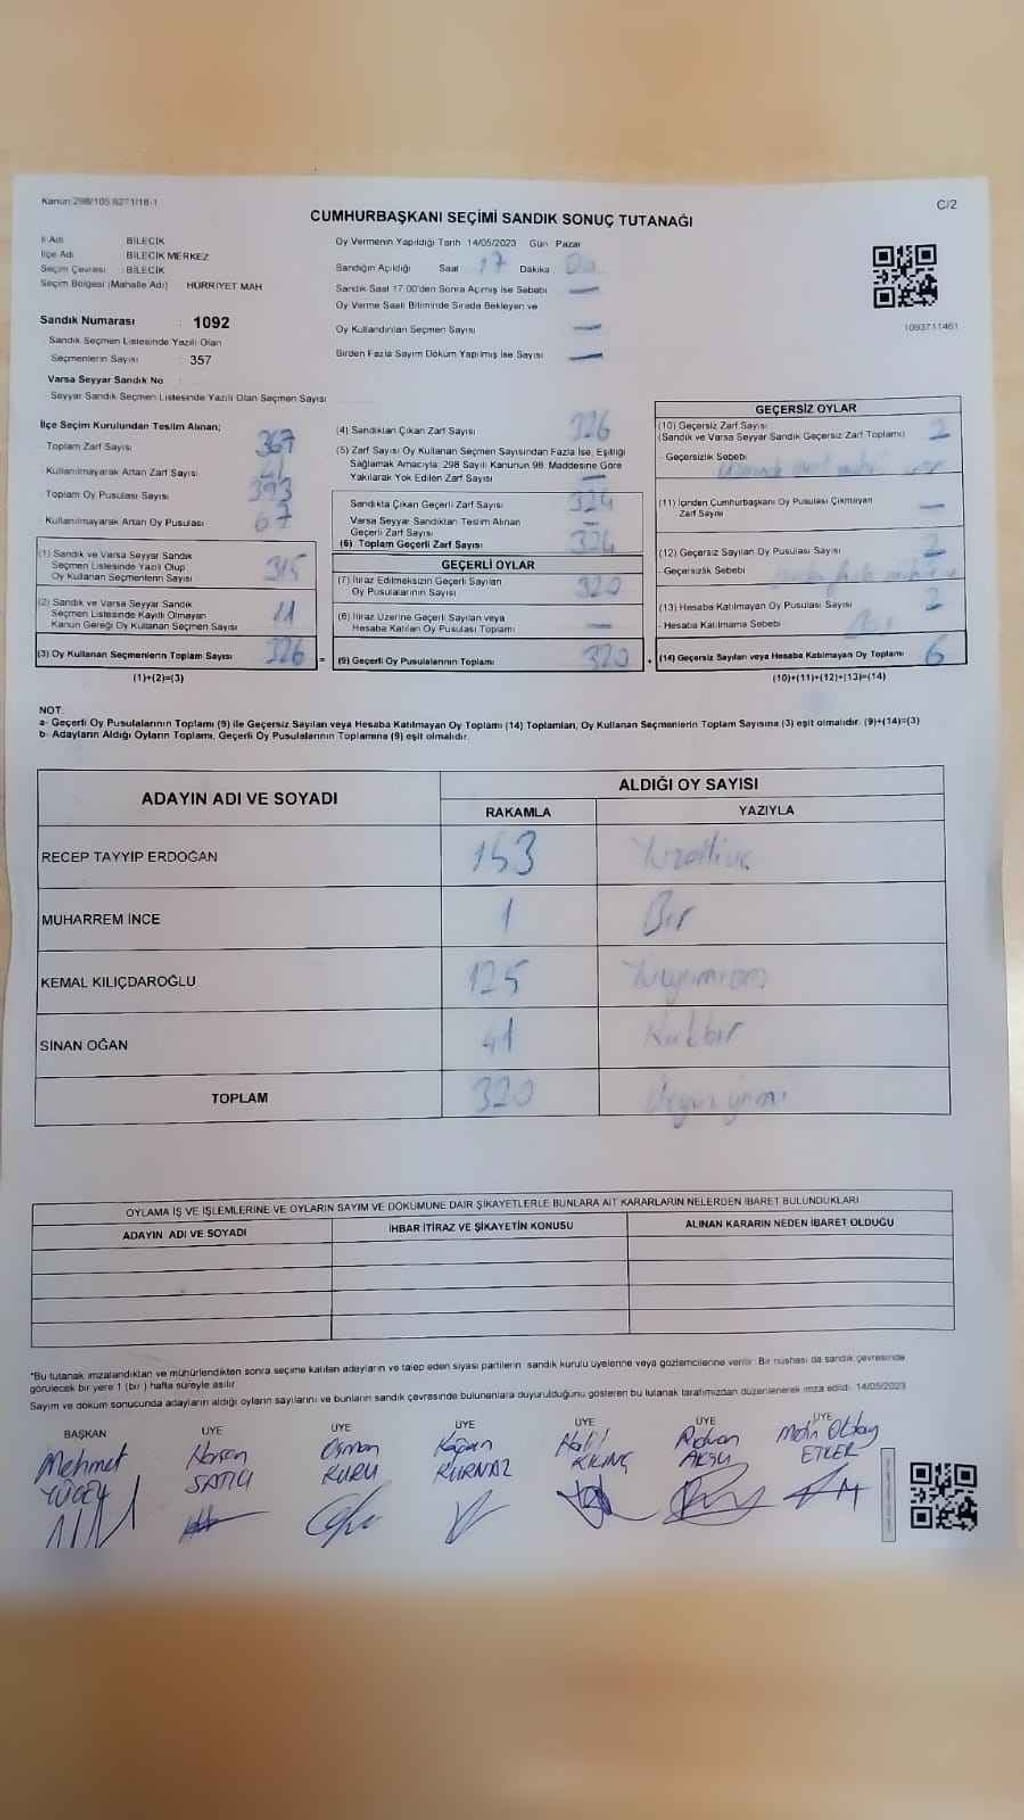 Kanun:298/105.6271/18-1
C/2
CUMHURBAŞKANI SEÇİMİ SANDIK SONUÇ TUTANAĞI
İl Adı BİLECİK
İlçe Adı BİLECİK MERKEZ
Seçim Çevresi : BİLECİK
Seçim Bölgesi (Mahalle Adı) HÜRRİYET MAH
Sandık Numarası : 1092
Sandık Seçmen Listesinde Yazılı Olan
Seçmenlerin Sayısı : 357
Varsa Seyyar Sandık No
Seyyar Sandık Seçmen Listesinde Yazılı Olan Seçmen Sayısı
Oy Vermenin Yapıldığı Tarih 14/05/2023 Gün Pazar
Sandığın Açıldığı Saat 17 Dakika
Sandık Saat 17:00'den Sonra Açmış İse Sebebi —
Oy Verme Saati Bitiminde Sırada Bekleyen ve
Oy Kullandırılan Seçmen Sayısı —
Birden Fazla Sayım Döküm Yapılmış İse Sayısı —
1093711461
İlçe Seçim Kurulundan Teslim Alınan;
Toplam Zarf Sayısı 367
Kullanılmayarak Artan Zarf Sayısı 41
Toplam Oy Pusulası Sayısı 393
Kullanılmayarak Artan Oy Pusulası 67
(1) Sandık ve Varsa Seyyar Sandık
Seçmen Listesinde Yazılı Olup
Oy Kullanan Seçmenlerin Sayısı 315
(2) Sandık ve Varsa Seyyar Sandık
Seçmen Listesinde Kayıtlı Olmayan
Kanun Gereği Oy Kullanan Seçmen Sayısı 11
(3) Oy Kullanan Seçmenlerin Toplam Sayısı 326 =
(1)+(2)=(3)
(4) Sandıktan Çıkan Zarf Sayısı 326
(5) Zarf Sayısı Oy Kullanan Seçmen Sayısından Fazla İse, Eşitliği
Sağlamak Amacıyla 298 Sayılı Kanunun 98. Maddesine Göre
Yakılarak Yok Edilen Zarf Sayısı —
Sandıkta Çıkan Geçerli Zarf Sayısı 324
Varsa Seyyar Sandıktan Teslim Alınan
Geçerli Zarf Sayısı —
(6) Toplam Geçerli Zarf Sayısı 324
GEÇERLİ OYLAR
(7) İtiraz Edilmeksizin Geçerli Sayılan
Oy Pusulalarının Sayısı 320
(8) İtiraz Üzerine Geçerli Sayılan veya
Hesaba Katılan Oy Pusulası Toplamı —
(9) Geçerli Oy Pusulalarının Toplamı 320 +
GEÇERSİZ OYLAR
(10) Geçersiz Zarf Sayısı
(Sandık ve Varsa Seyyar Sandık Geçersiz Zarf Toplamı) 2
- Geçersizlik Sebebi
(11) İçinden Cumhurbaşkanı Oy Pusulası Çıkmayan
Zarf Sayısı —
(12) Geçersiz Sayılan Oy Pusulası Sayısı 2
- Geçersizlik Sebebi
(13) Hesaba Katılmayan Oy Pusulası Sayısı 2
- Hesaba Katılmama Sebebi
(14) Geçersiz Sayılan veya Hesaba Katılmayan Oy Toplamı 6
(10)+(11)+(12)+(13)=(14)
NOT:
a- Geçerli Oy Pusulalarının Toplamı (9) ile Geçersiz Sayılan veya Hesaba Katılmayan Oy Toplamı (14) Toplamları, Oy Kullanan Seçmenlerin Toplam Sayısına (3) eşit olmalıdır. (9)+(14)=(3)
b- Adayların Aldığı Oyların Toplamı, Geçerli Oy Pusulalarının Toplamına (9) eşit olmalıdır.
ADAYIN ADI VE SOYADI
ALDIĞI OY SAYISI
RAKAMLA YAZIYLA
RECEP TAYYİP ERDOĞAN 153 Yüzelliüç
MUHARREM İNCE 1 Bir
KEMAL KILIÇDAROĞLU 125
SİNAN OĞAN 41 Kırkbir
TOPLAM 320
OYLAMA İŞ VE İŞLEMLERİNE VE OYLARIN SAYIM VE DÖKÜMÜNE DAİR ŞİKAYETLERLE BUNLARA AİT KARARLARIN NELERDEN İBARET BULUNDUKLARI
ADAYIN ADI VE SOYADI İHBAR İTİRAZ VE ŞİKAYETİN KONUSU ALINAN KARARIN NEDEN İBARET OLDUĞU
*Bu tutanak imzalandıktan ve mühürlendikten sonra seçime katılan adayların ve talep eden siyasi partilerin sandık kurulu üyelerine veya gözlemcilerine verilir. Bir nüshası da sandık çevresinde
görülecek bir yere 1 (bir) hafta süreyle asılır.
Sayım ve döküm sonucunda adayların aldığı oyların sayılarını ve bunların sandık çevresinde bulunanlara duyurulduğunu gösteren bu tutanak tarafımızdan düzenlenerek imza edildi. 14/05/2023
BAŞKAN ÜYE ÜYE ÜYE ÜYE ÜYE ÜYE
Mehmet Hasan Osman Kağan Halil Rıdvan Metin Oktay
SATICI KURU KURNAZ KILINÇ AKSU ETKER